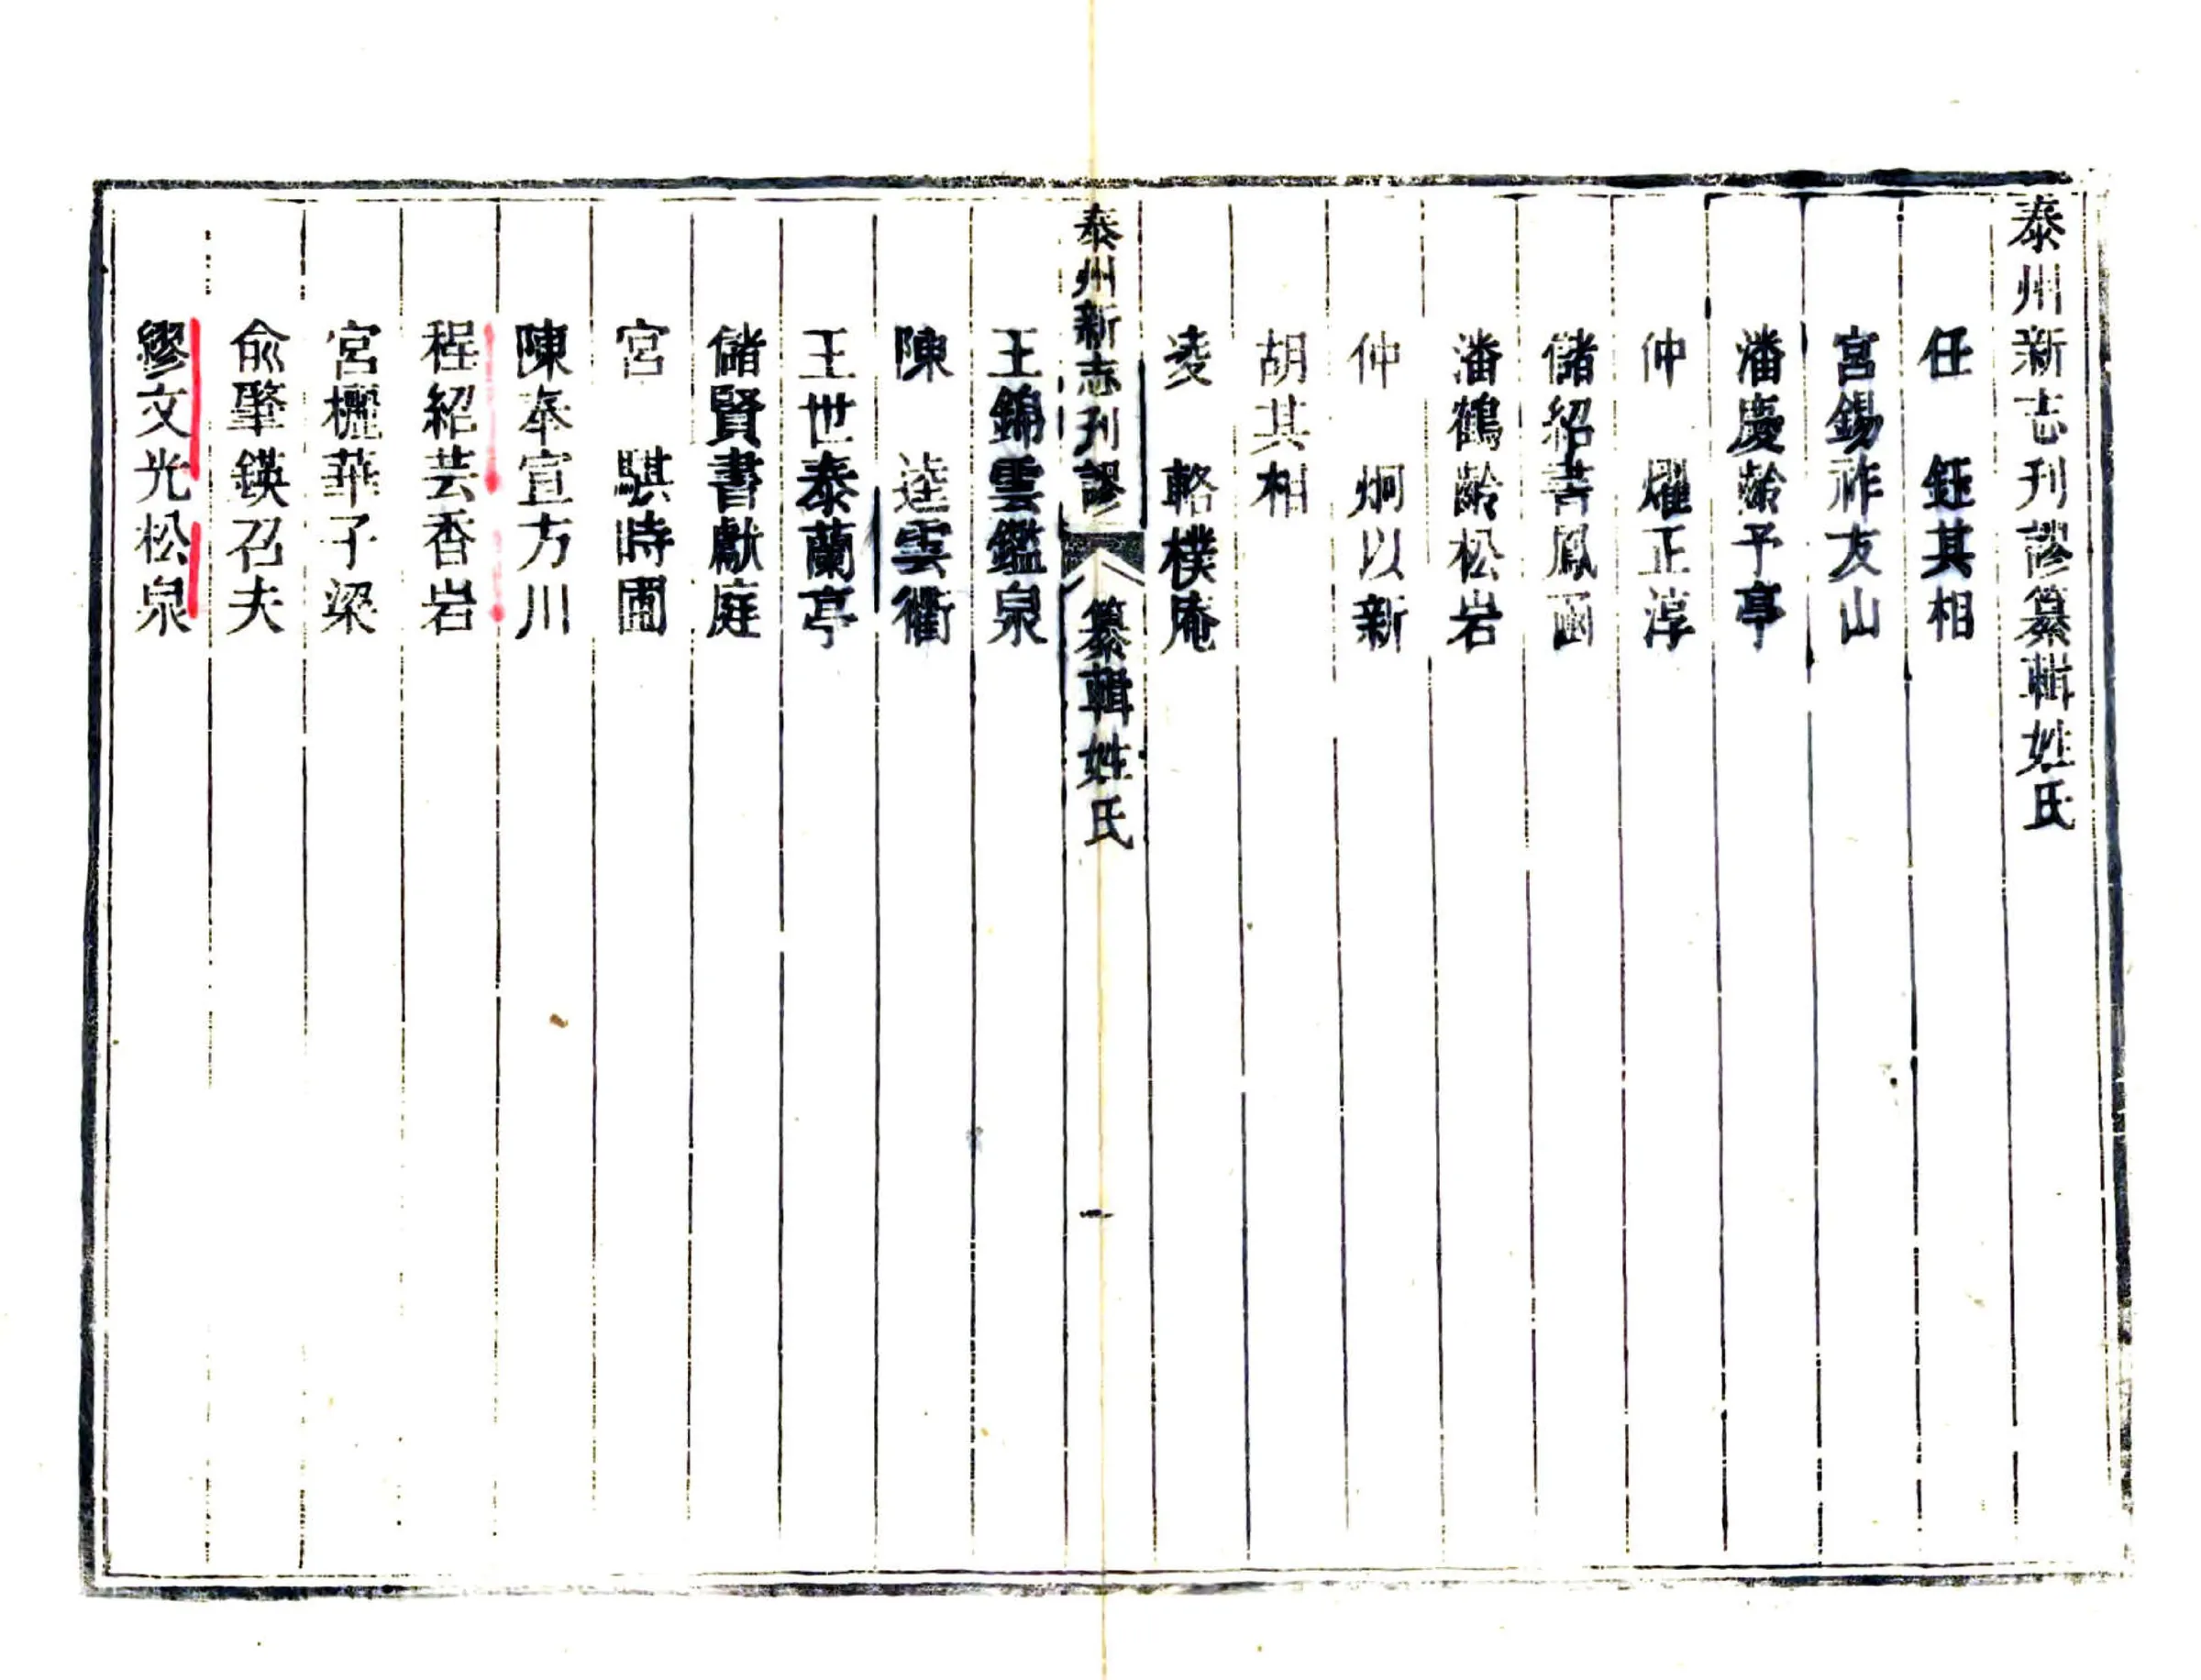 泰州新志刊謬纂輯姓氏
任　鈺其相
宮錫祚友山
潘慶齡予亭
仲　燿正淳
儲紹菩鳳函
潘鶴齡松岩
仲　炯以新
胡其相
凌　輅樸庵
泰州新志刊謬　纂輯姓氏　一
王錦雲鑑泉
陳　逵雲衢
王世泰蘭亭
儲賢書獻庭
宮　騏時圃
陳奉宣方川
程紹芸香岩
宮櫳華子梁
俞肇鍈召夫
繆文光松泉